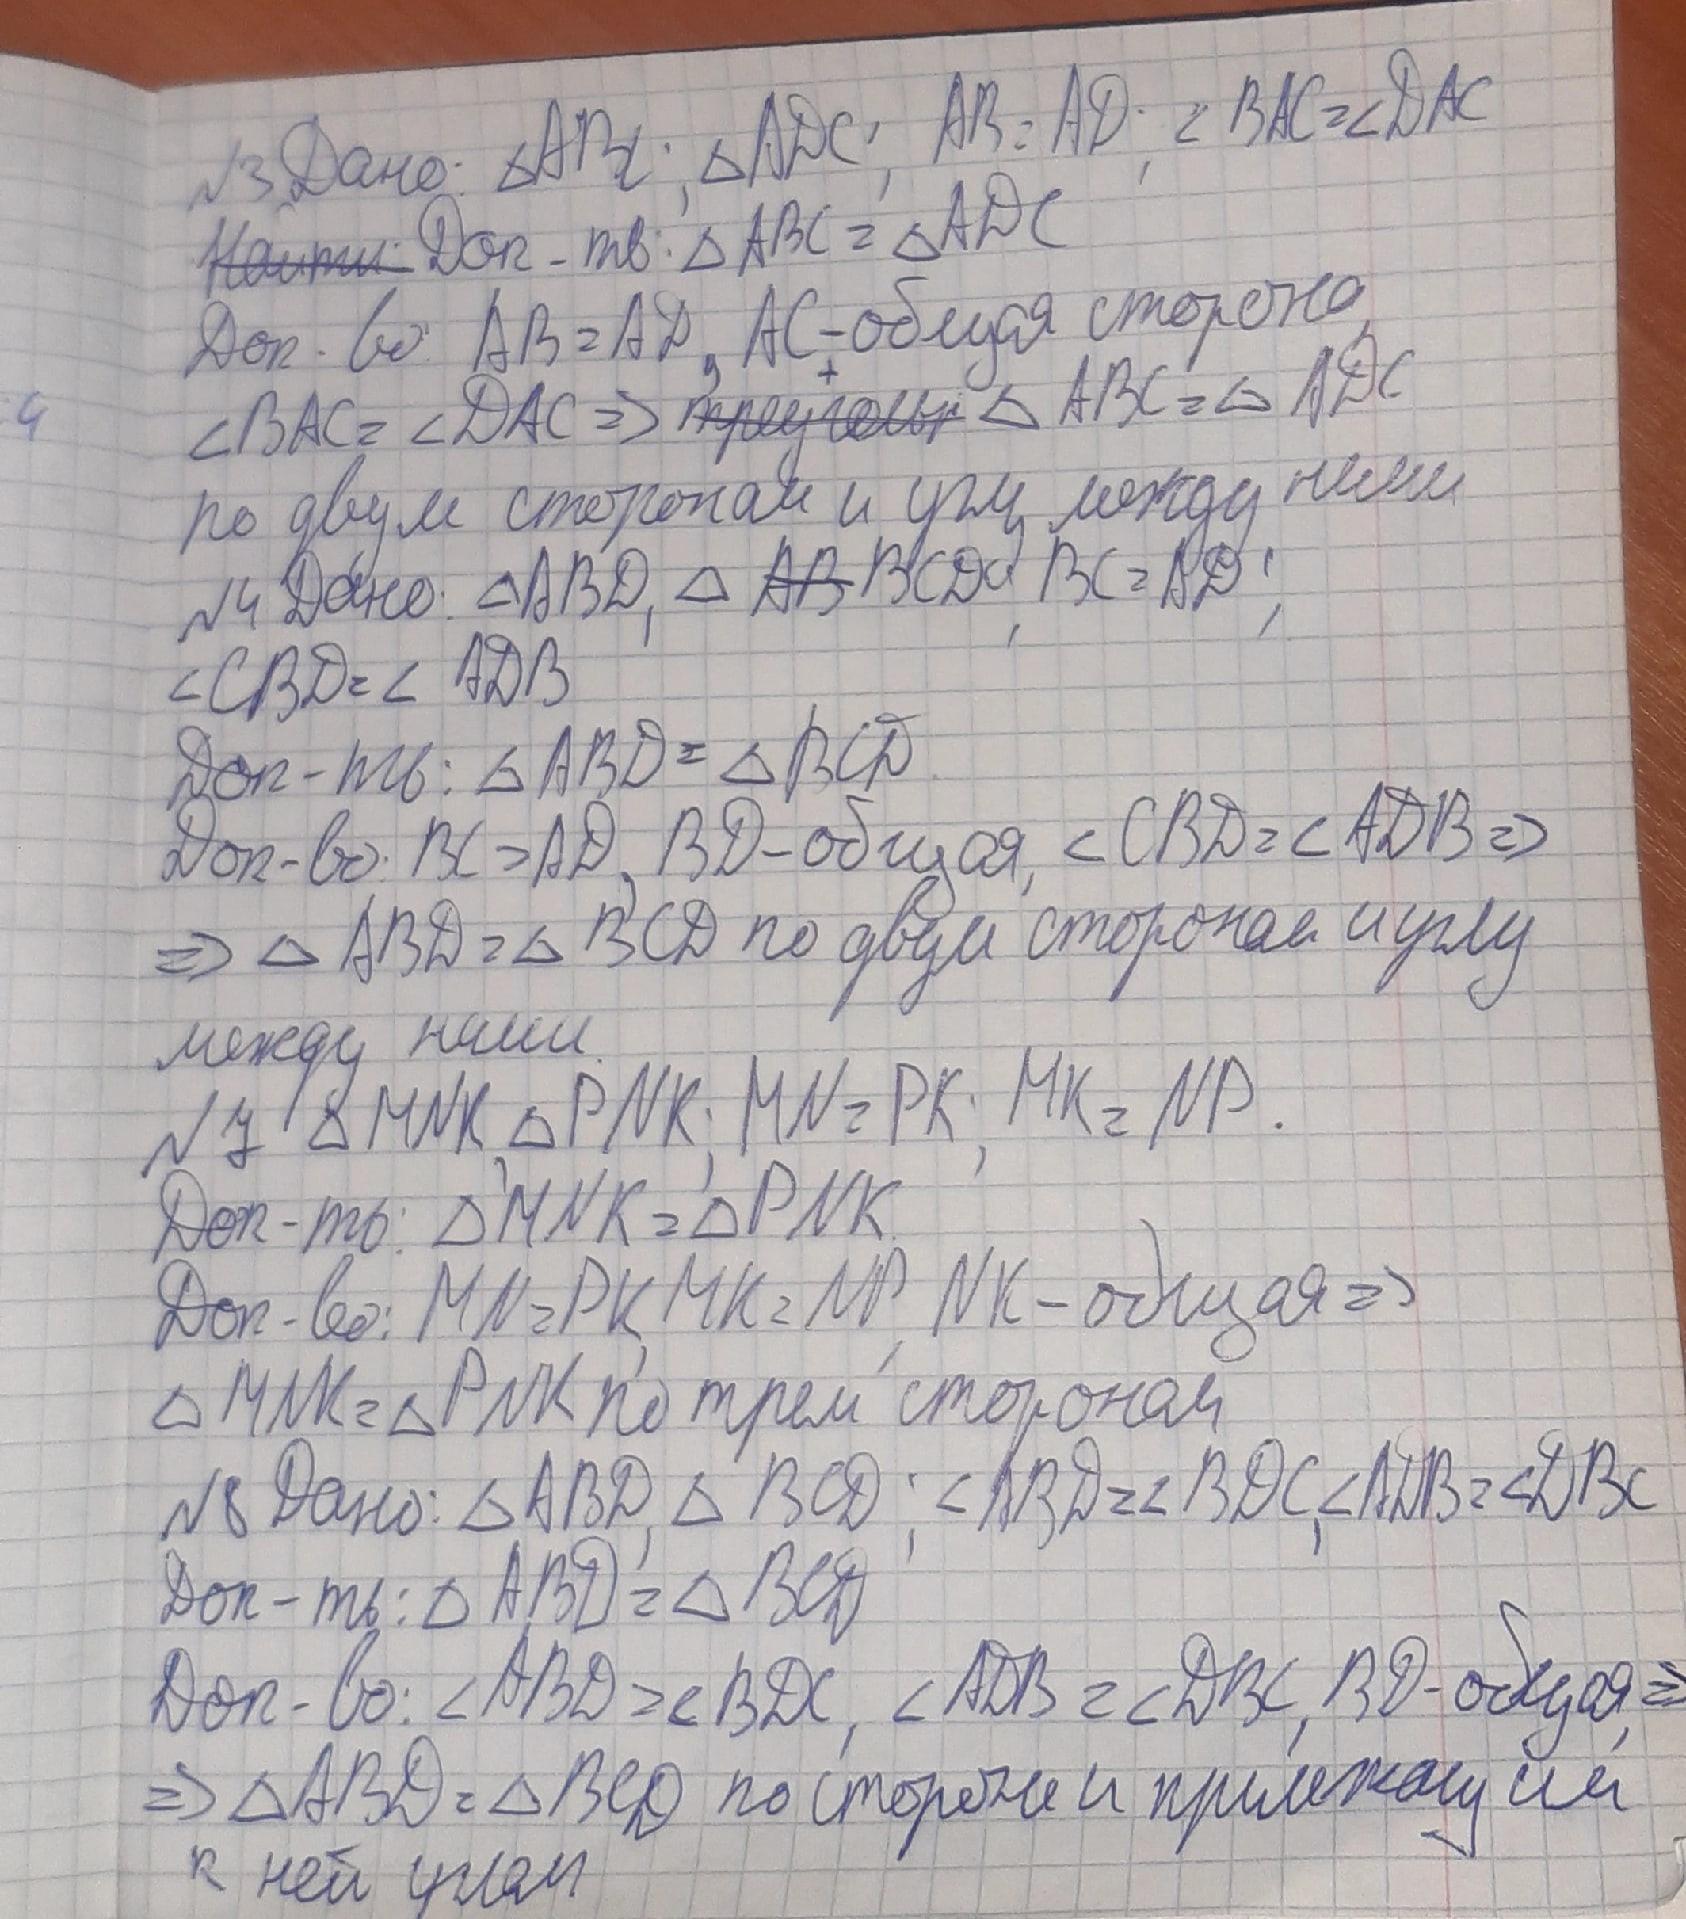 №3 Дано: △ABC; △ADC; AB=AD; ∠BAC=∠DAC
Найти: Док-ть: △ABC=△ADC
Док-во: AB=AD, AC-общая сторона,
∠BAC=∠DAC=> треугольн △ABC=△ADC
по двум сторонам и углу между ними
№4 Дано: △ABD, △ AB BCD; BC=AD;
∠CBD=∠ADB
Док-ть: △ABD=△BCD
Док-во: BC=AD, BD-общая, ∠CBD=∠ADB=>
=> △ABD=△BCD по двум сторонам и углу
между ними.
№7 △MNK, △PNK; MN=PK; MK=NP.
Док-ть: △MNK=△PNK
Док-во: MN=PK, MK=NP, NK-общая=>
△MNK=△PNK по трем сторонам
№8 Дано: △ABD, △BCD; ∠ABD=∠BDC, ∠ADB=∠DBC
Док-ть: △ABD=△BCD
Док-во: ∠ABD=∠BDC, ∠ADB=∠DBC, BD-общая,=>
=> △ABD=△BCD по стороне и прилежащим
к ней углам
4